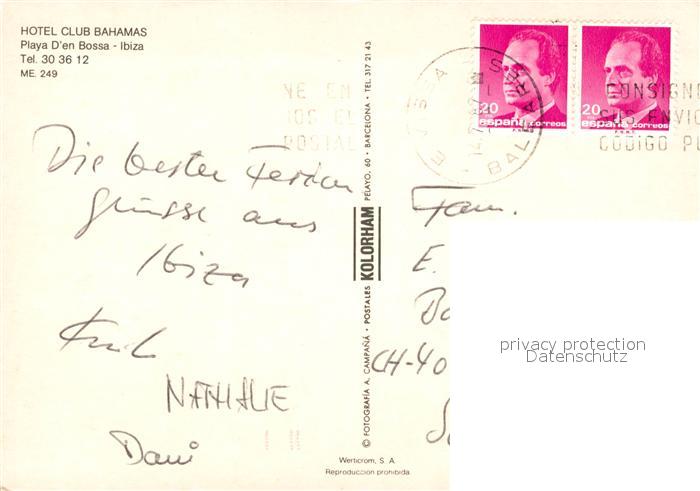 HOTEL CLUB BAHAMAS
Playa D'en Bossa - Ibiza
Tel. 30 36 12
ME. 249
Die besten Ferien
grüsse aus
Ibiza
NATHALIE
Dani
© FOTOGRAFIA A. CAMPAÑÁ - POSTALES KOLORHAM PELAYO, 60 - BARCELONA - TEL. 317 21 43
Werticrom, S. A.
Reproducción prohibida
20
españa correos
F.N.M.T.
20
españa correos
F.N.M.T.
BALEARES
NE EN
IOS EL
POSTAL
CONSIGNE
SUS ENVIO
CODIGO PO
Fam.
E.
CH-40
privacy protection
Datenschutz